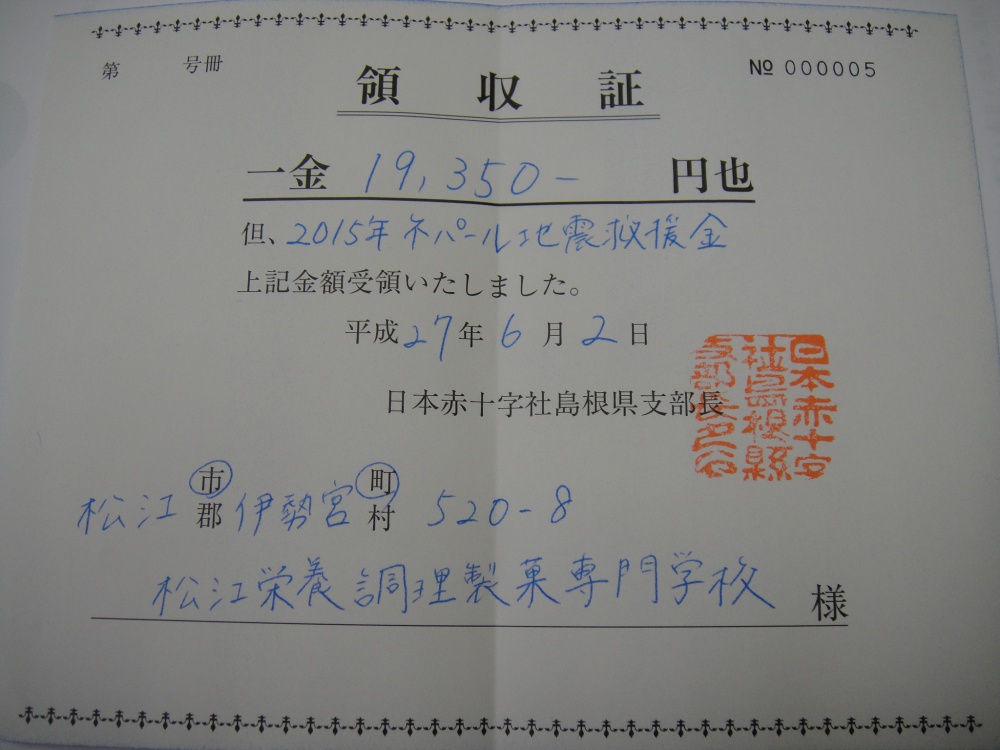 第 号冊 № 000005
領収証
一金 19,350- 円也
但、2015年ネパール地震救援金
上記金額受領いたしました。
平成27年6月2日
日本赤十字社島根県支部長
日本赤十字
社島根縣
支部長之
松江 市郡 伊勢宮 町村 520-8
松江栄養調理製菓専門学校 様